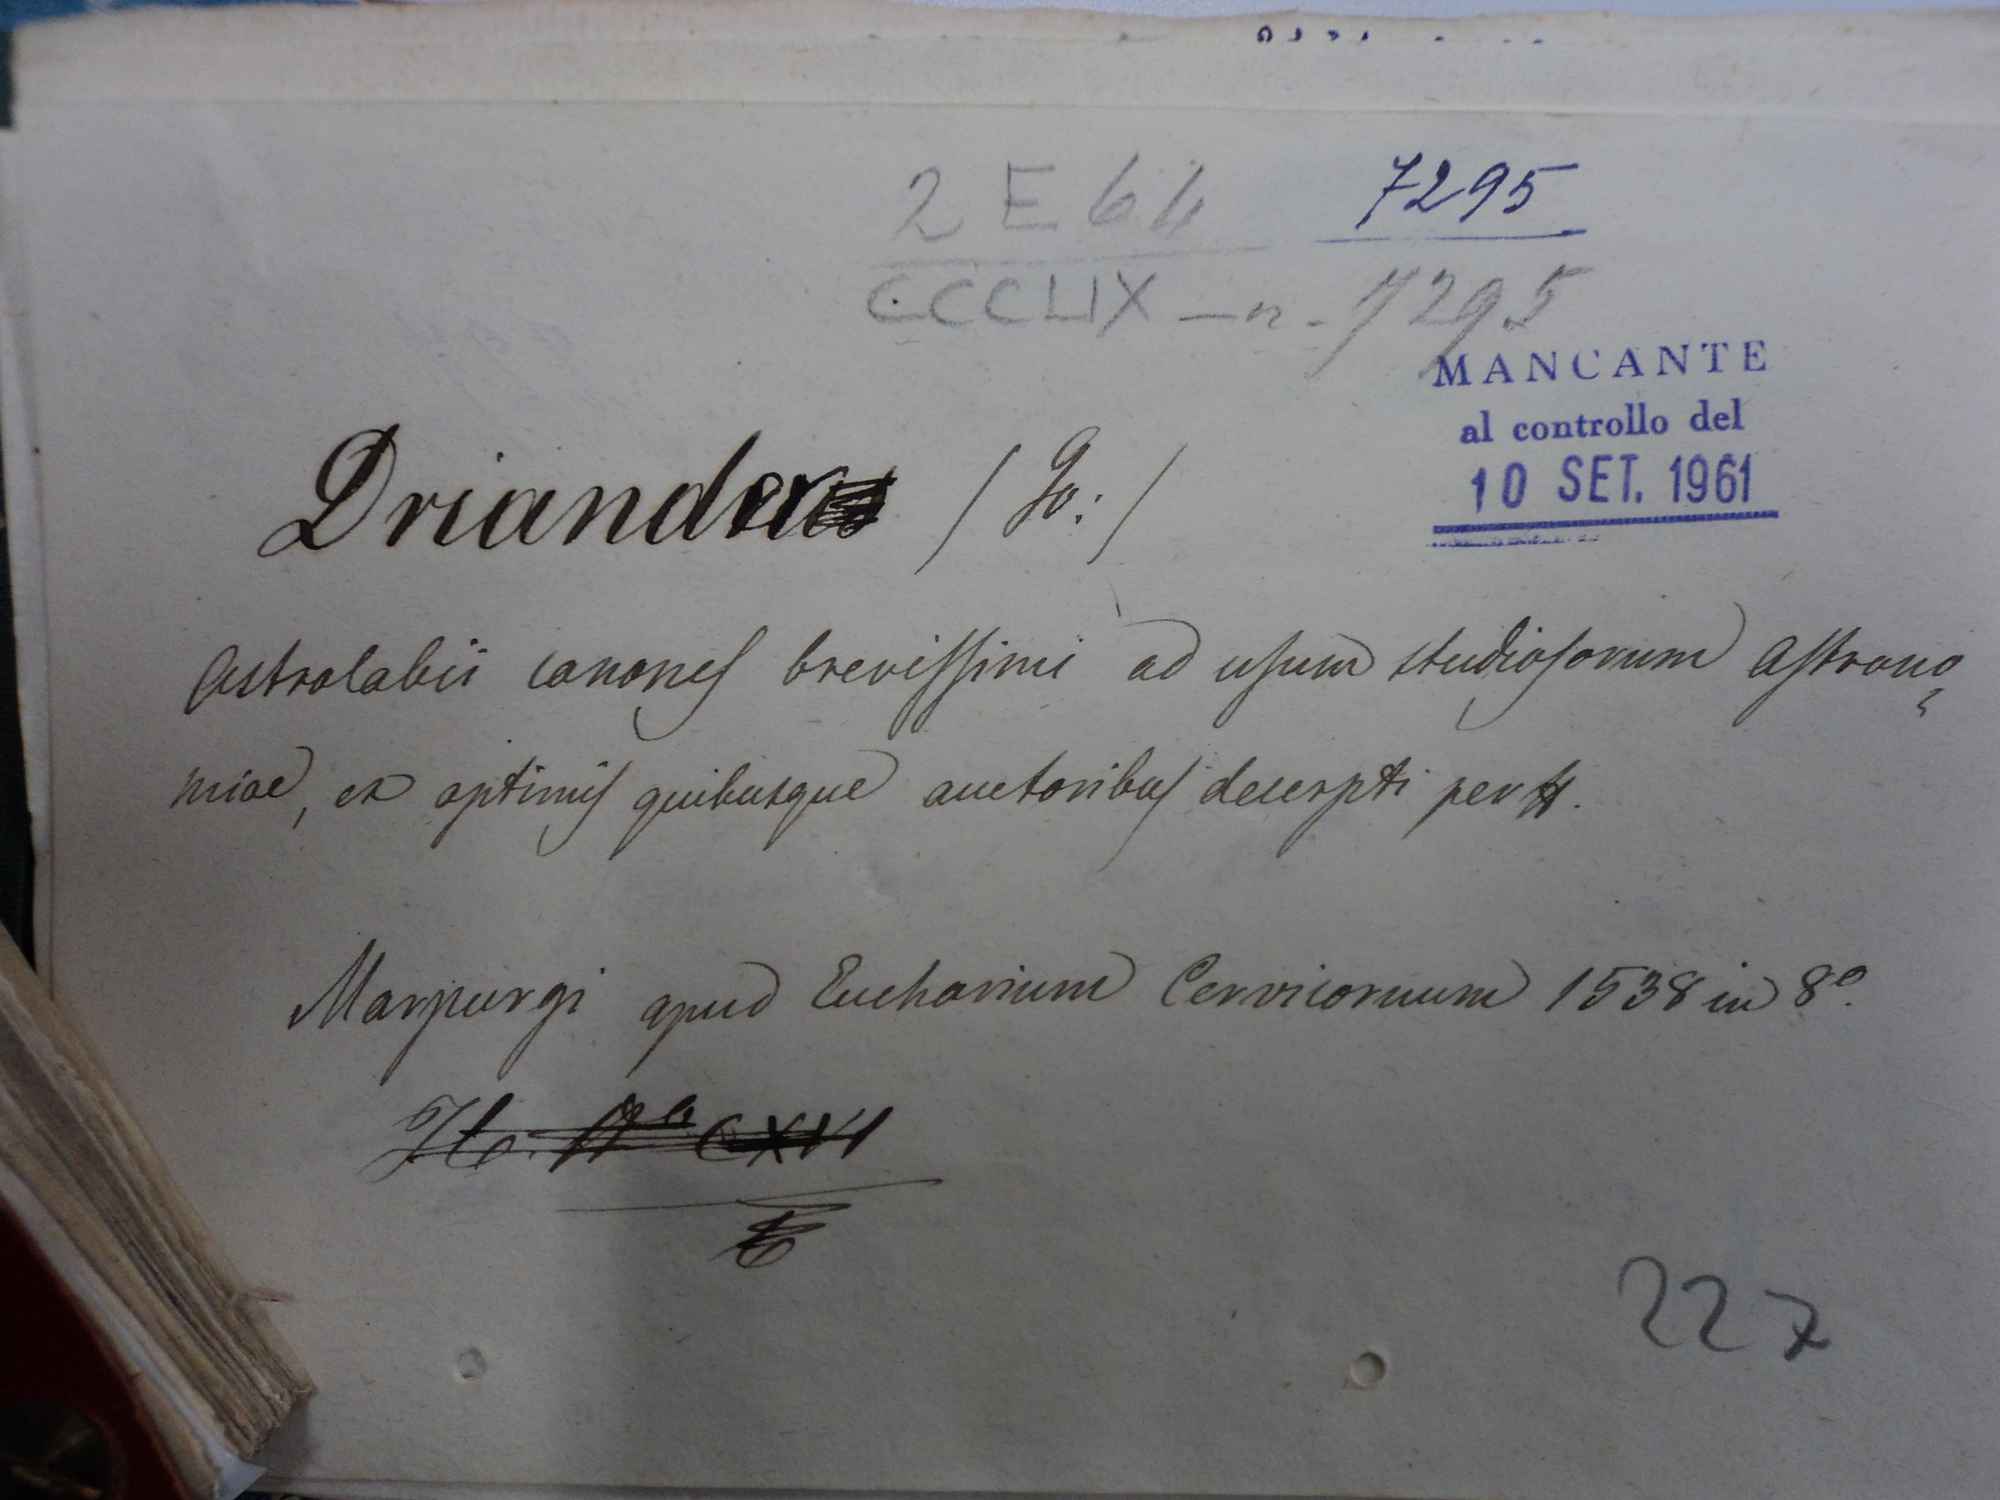 2 E 64 7295
CCCLIX — n. 7295
MANCANTE
al controllo del
10 SET. 1961
Driander (Jo:)
Astrolabii canones brevissimi ad usum studiosorum Astrono
miae, ex optimis quibusque auctoribus decerpti per
Marpurgi apud Eucharium Cervicornum 1538 in 8º.
227